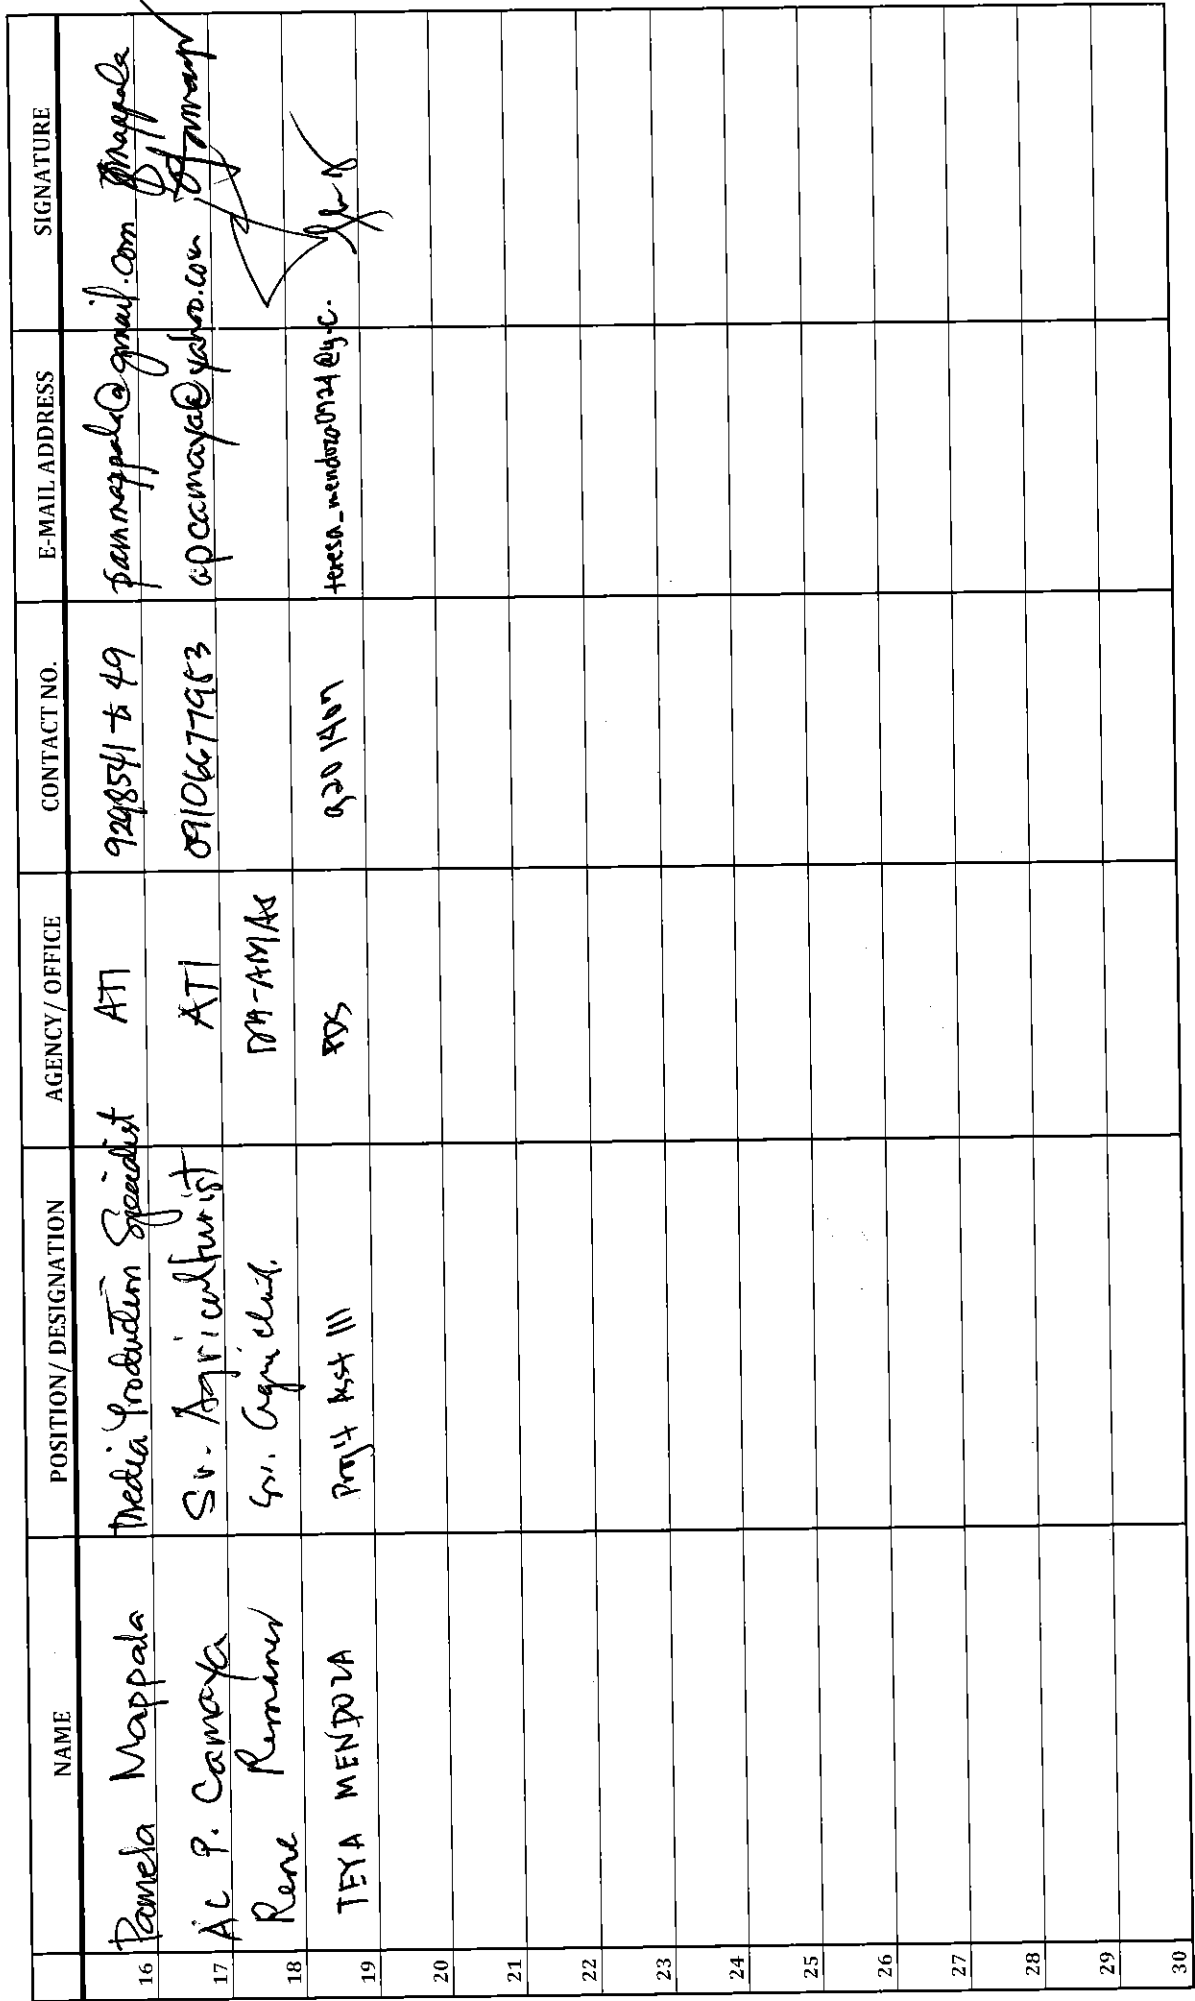 NAME POSITION/ DESIGNATION AGENCY/ OFFICE CONTACT NO. E-MAIL ADDRESS SIGNATURE
16 Pamela Mappala Media Production Specialist ATI pammappala@gmail.com
17 Ac P. Camaya Sr. Agriculturist ATI 09106677953 apcamaya@yahoo.com
18 Rene DA-AMAS
19 TEYA MENDOZA Proj't Asst III PDS 9201407 teresa_mendoza0724@y.c.
20
21
22
23
24
25
26
27
28
29
30